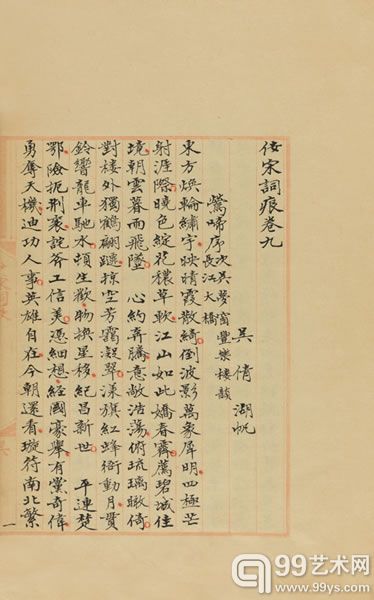 佞宋詞痕卷九
吳倩 湖帆
鶯啼序 次吳夢窗豐樂樓韻
長江大橋
東方煥輪繡宇映晴霞散綺倒波影萬象犀明四極芒
射涯際曉色綻花穠草軟江山如此嬌春霽薦碧城佳
境朝雲暮雨飛墜 心約奔騰意敞浩蕩俯琉璃暾倚
對樓外獨鶴翩躚掠空芳靄凝翠漾旗紅蜂衙動月
鈴響龍車馳水頓生歡物換星移紀昌新世 平連楚
鄂險扼荊襄詫斧工信美憑細想經國豪舉有黨奇偉
勇奪天機迪功人事英雄自在今朝還看璇符南北繁
一
99艺术网
www.99ys.com